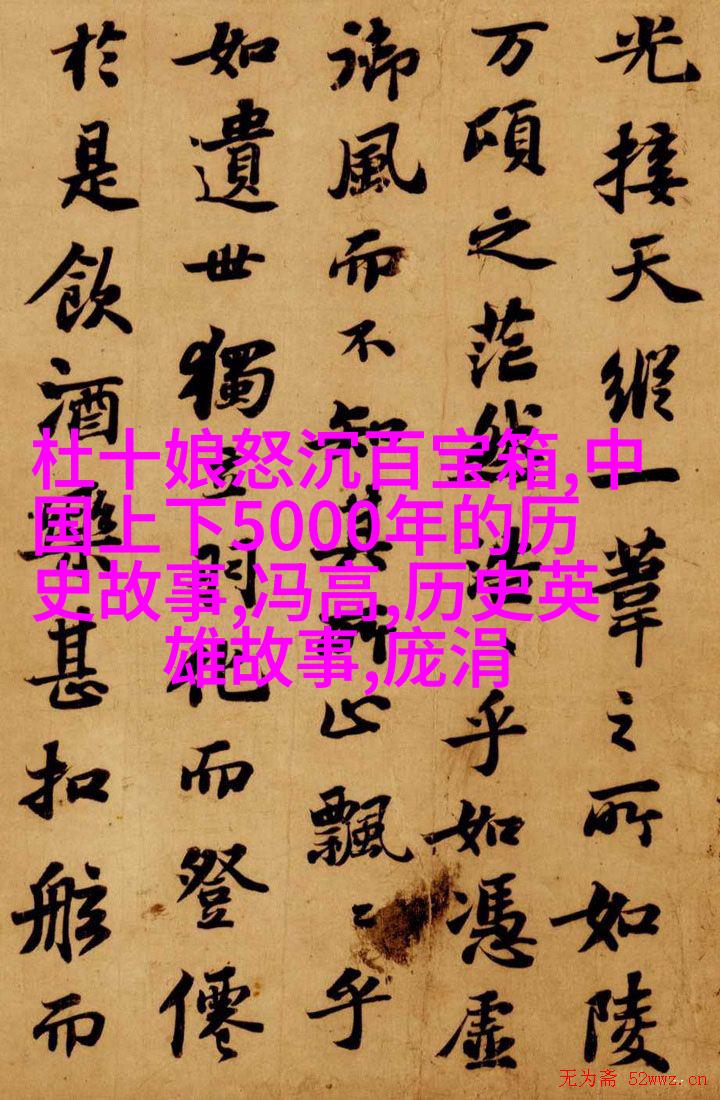 光接天縱一葦之所如陵
万頃之茫然浩〻乎如憑虛
御風而不知其所止飄〻乎
如遺世獨立羽化而登僊
於是飲酒樂甚扣舷而
杜十娘怒沉百宝箱,中
国上下5000年的历
史故事,冯高,历史英
雄故事,庞涓
无为斋 52wwz.cn